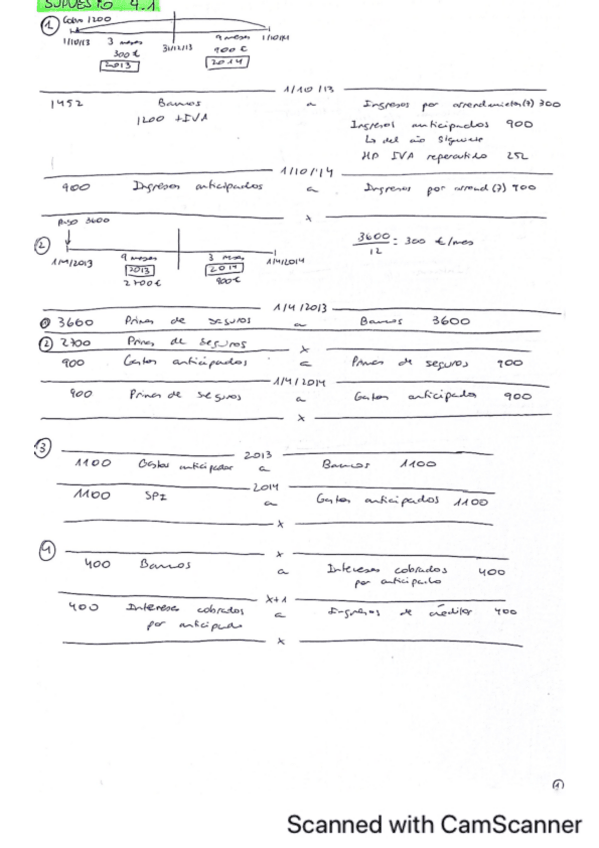 SUPUESTO 4.1
① Cobro 1200
1/10/13 3 meses 31/12/13 9 meses 1/10/14
300 € 900 €
2013 2014
1/10/13
1452 Bancos a Ingresos por arrendamientos (7) 300
1200 + IVA Ingresos anticipados 900
Lo del año siguiente
HP IVA repercutido 252
1/10/14
900 Ingresos anticipados a Ingresos por arrend (7) 900
x
Pago 3600
② 3600/12 = 300 €/mes
1/4/2013 9 meses 3 meses 1/4/2014
2013 2014
2700€ 900€
1/4/2013
① 3600 Primas de seguros a Bancos 3600
② 2700 Primas de seguros
x
900 Gastos anticipados a Primas de seguros 900
1/4/2014
900 Primas de seguros a Gastos anticipados 900
x
③ 2013
1100 Gastos anticipados a Bancos 1100
2014
1100 a Gastos anticipados 1100
x
④ x
400 Bancos a Intereses cobrados por anticipado 400
x+1
400 Intereses cobrados por anticipado a Ingresos de créditos 400
x
①
Scanned with CamScanner